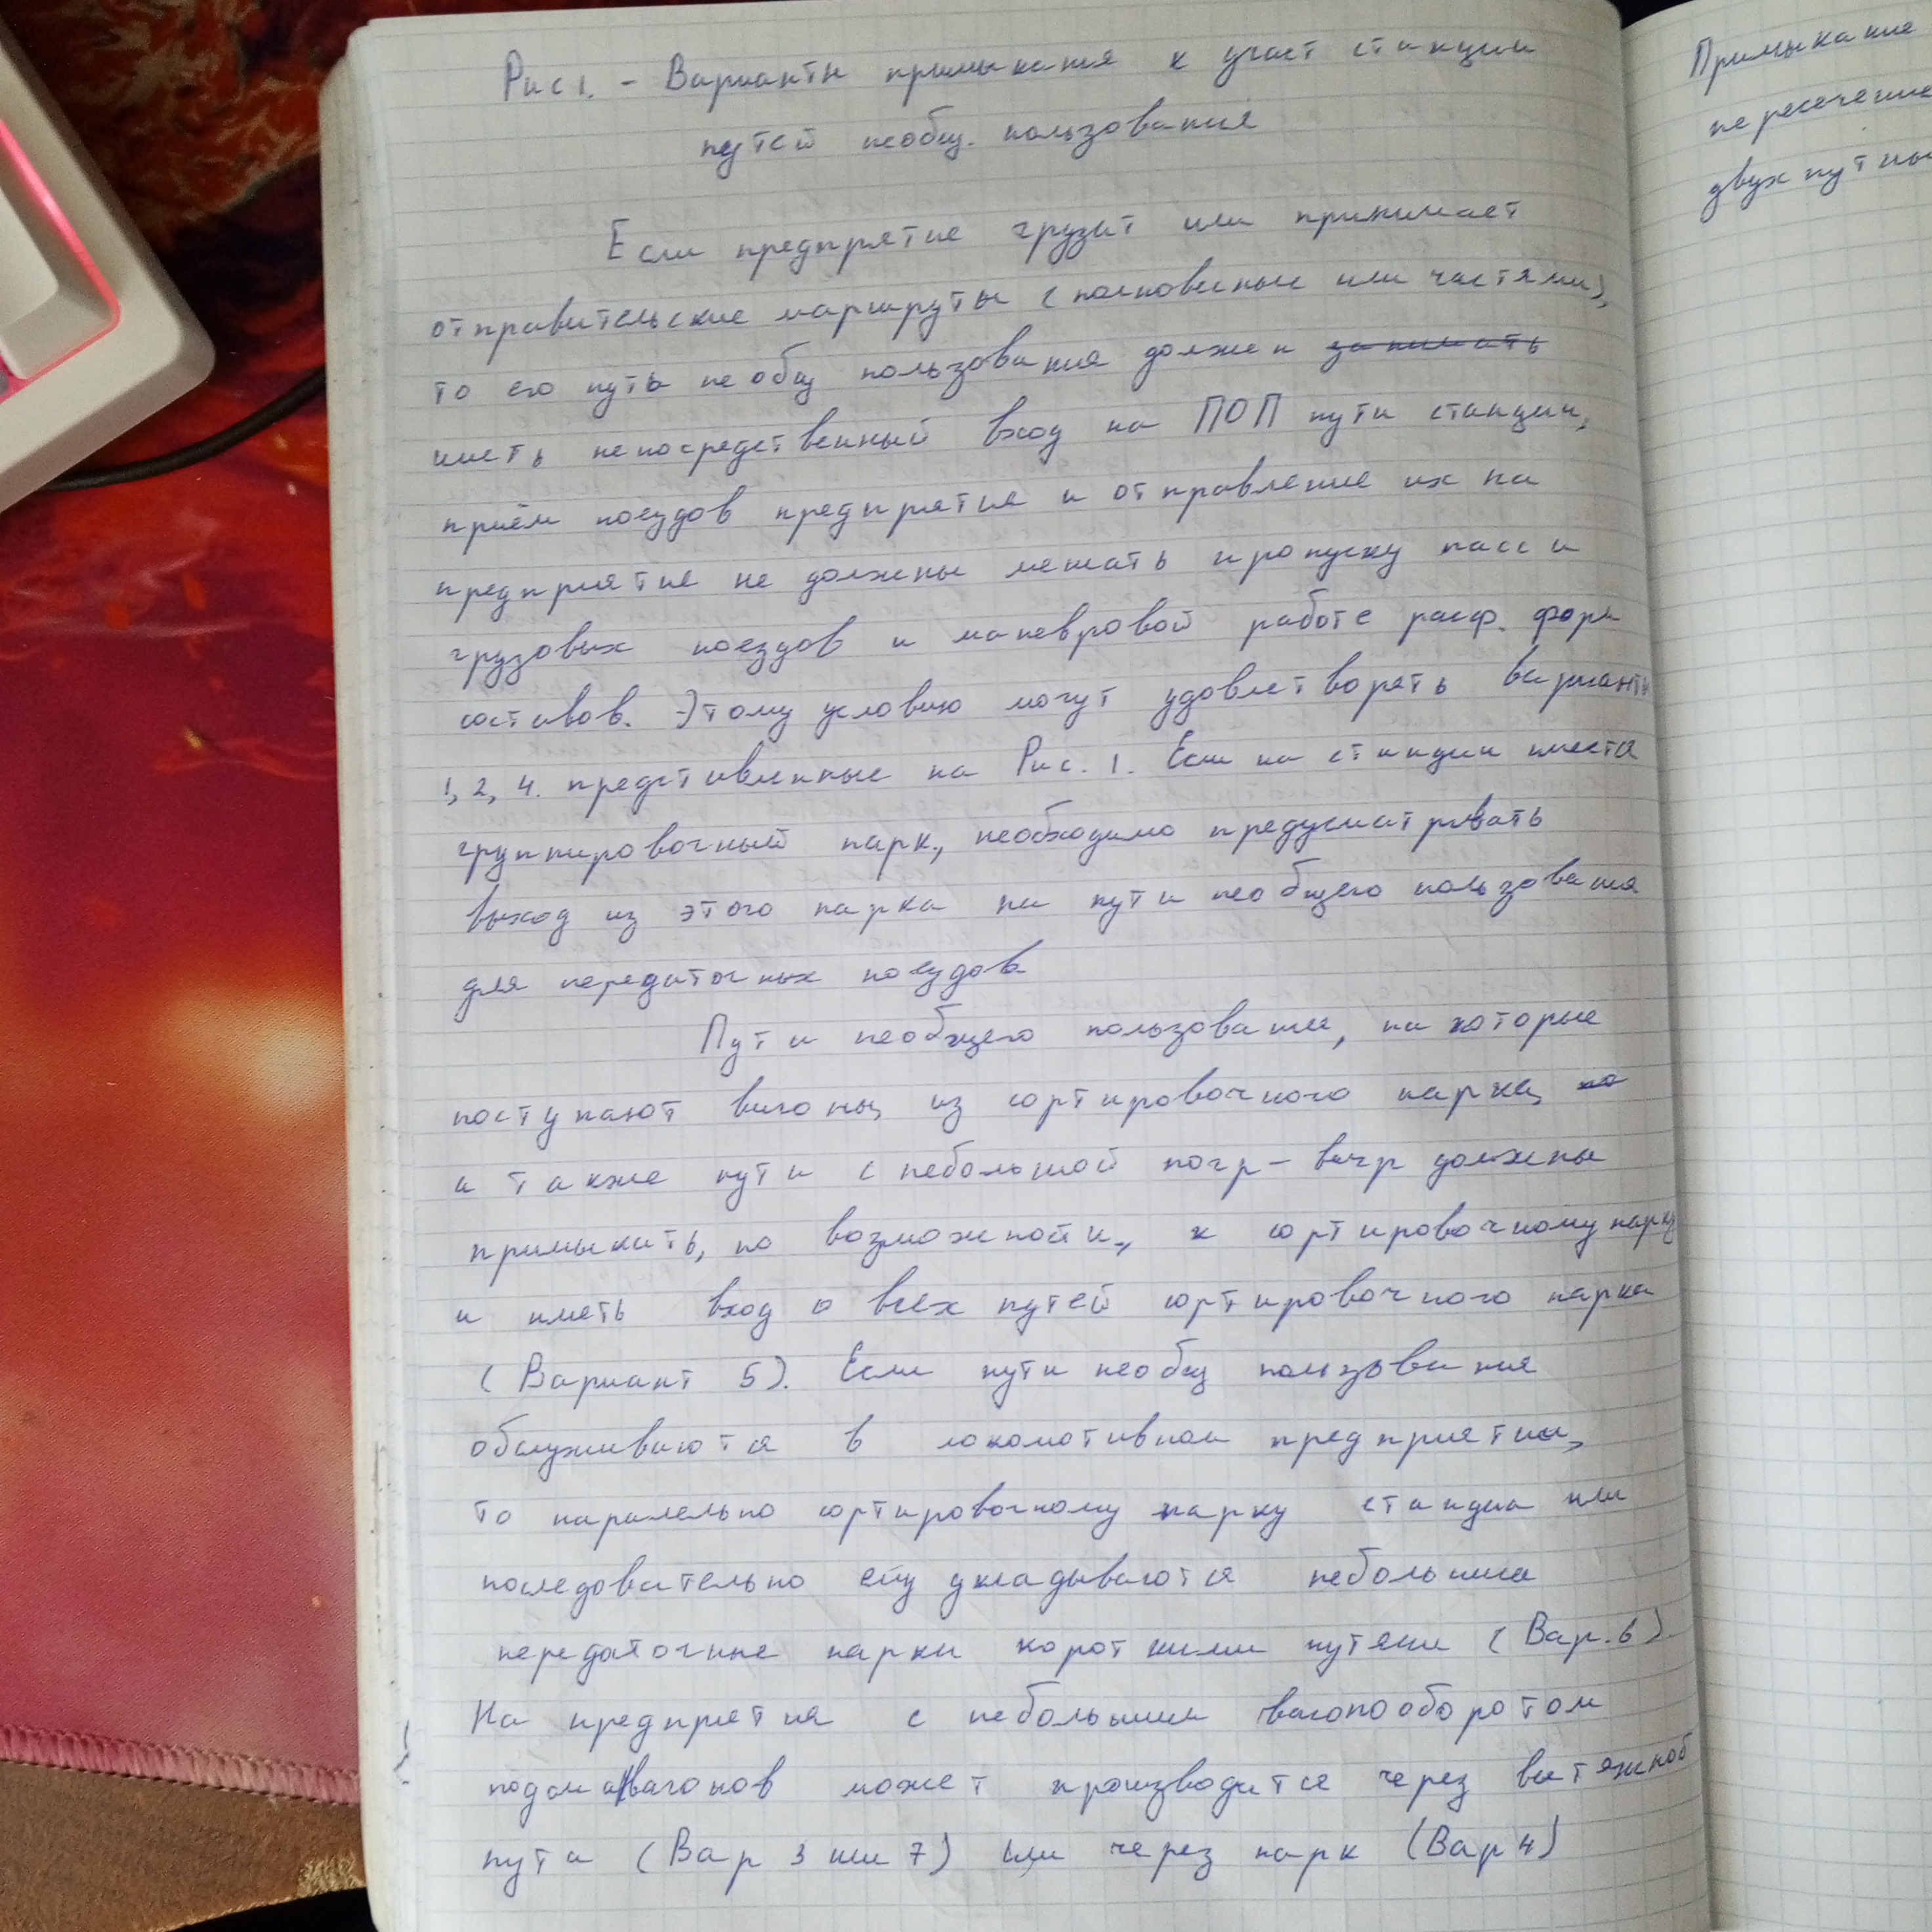 Рис 1. - Варианты примыкания к участ станции
путей необщ. пользования
Если предприятие грузит или принимает
отправительские маршруты (полновесные или частями),
то его путь необщ пользования должен занимать
иметь непосредственный вход на ПОП пути станции,
приём поездов предприятия и отправление их на
предприятие не должны мешать пропуску пасс и
грузовых поездов и маневровой работе расф. форм
составов. Этому условию могут удовлетворять варианты
1, 2, 4. представленные на Рис. 1. Если на станции имеется
группировочный парк, необходимо предусматривать
выход из этого парка на пути необщего пользования
для передаточных поездов
Пути необщего пользования, на которые
поступают вагоны из сортировочного парка,
а также пути с небольшой погр-выгр должны
примыкать, по возможности, к сортировочному парку
и иметь вход со всех путей сортировочного парка
(Вариант 5). Если пути необщ пользования
обслуживаются в локомотивом предприятия,
то паралельно сортировочному парку станции или
последовательно ему укладываются небольшие
передаточные парки короткими путями (Вар. 6).
На предприятия с небольшим вагонооборотом
подача вагонов может производится через вытяжной
пути (Вар 3 или 7) или через парк (Вар 4)
Примыкание
пересечение
двухпутны